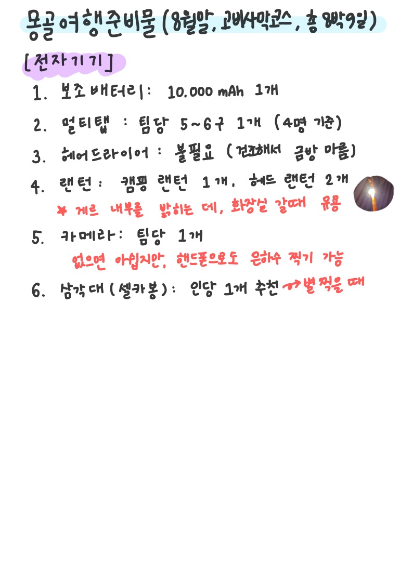 몽골여행준비물 (8월말, 고비사막코스, 총 8박9일)
[전자기기]
1. 보조배터리: 10.000 mAh 1개
2. 멀티탭 : 팀당 5~6구 1개 (4명 기준)
3. 헤어드라이어 : 불필요 (건조해서 금방 마름)
4. 랜턴: 캠핑 랜턴 1개, 헤드 랜턴 2개
★ 게르 내부를 밝히는 데, 화장실 갈때 유용
5. 카메라: 팀당 1개
없으면 아쉽지만, 핸드폰으로도 은하수 찍기 가능
6. 삼각대(셀카봉): 인당 1개 추천 → 별 찍을 때